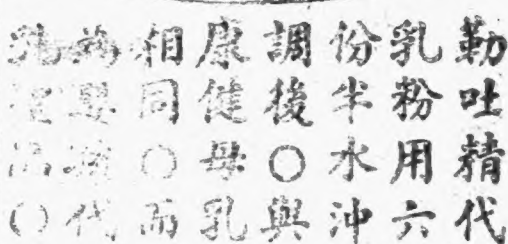 勒吐精代
乳粉用六
份半水沖
調後○與
康健母乳
相同○而
為嬰孩代
乳